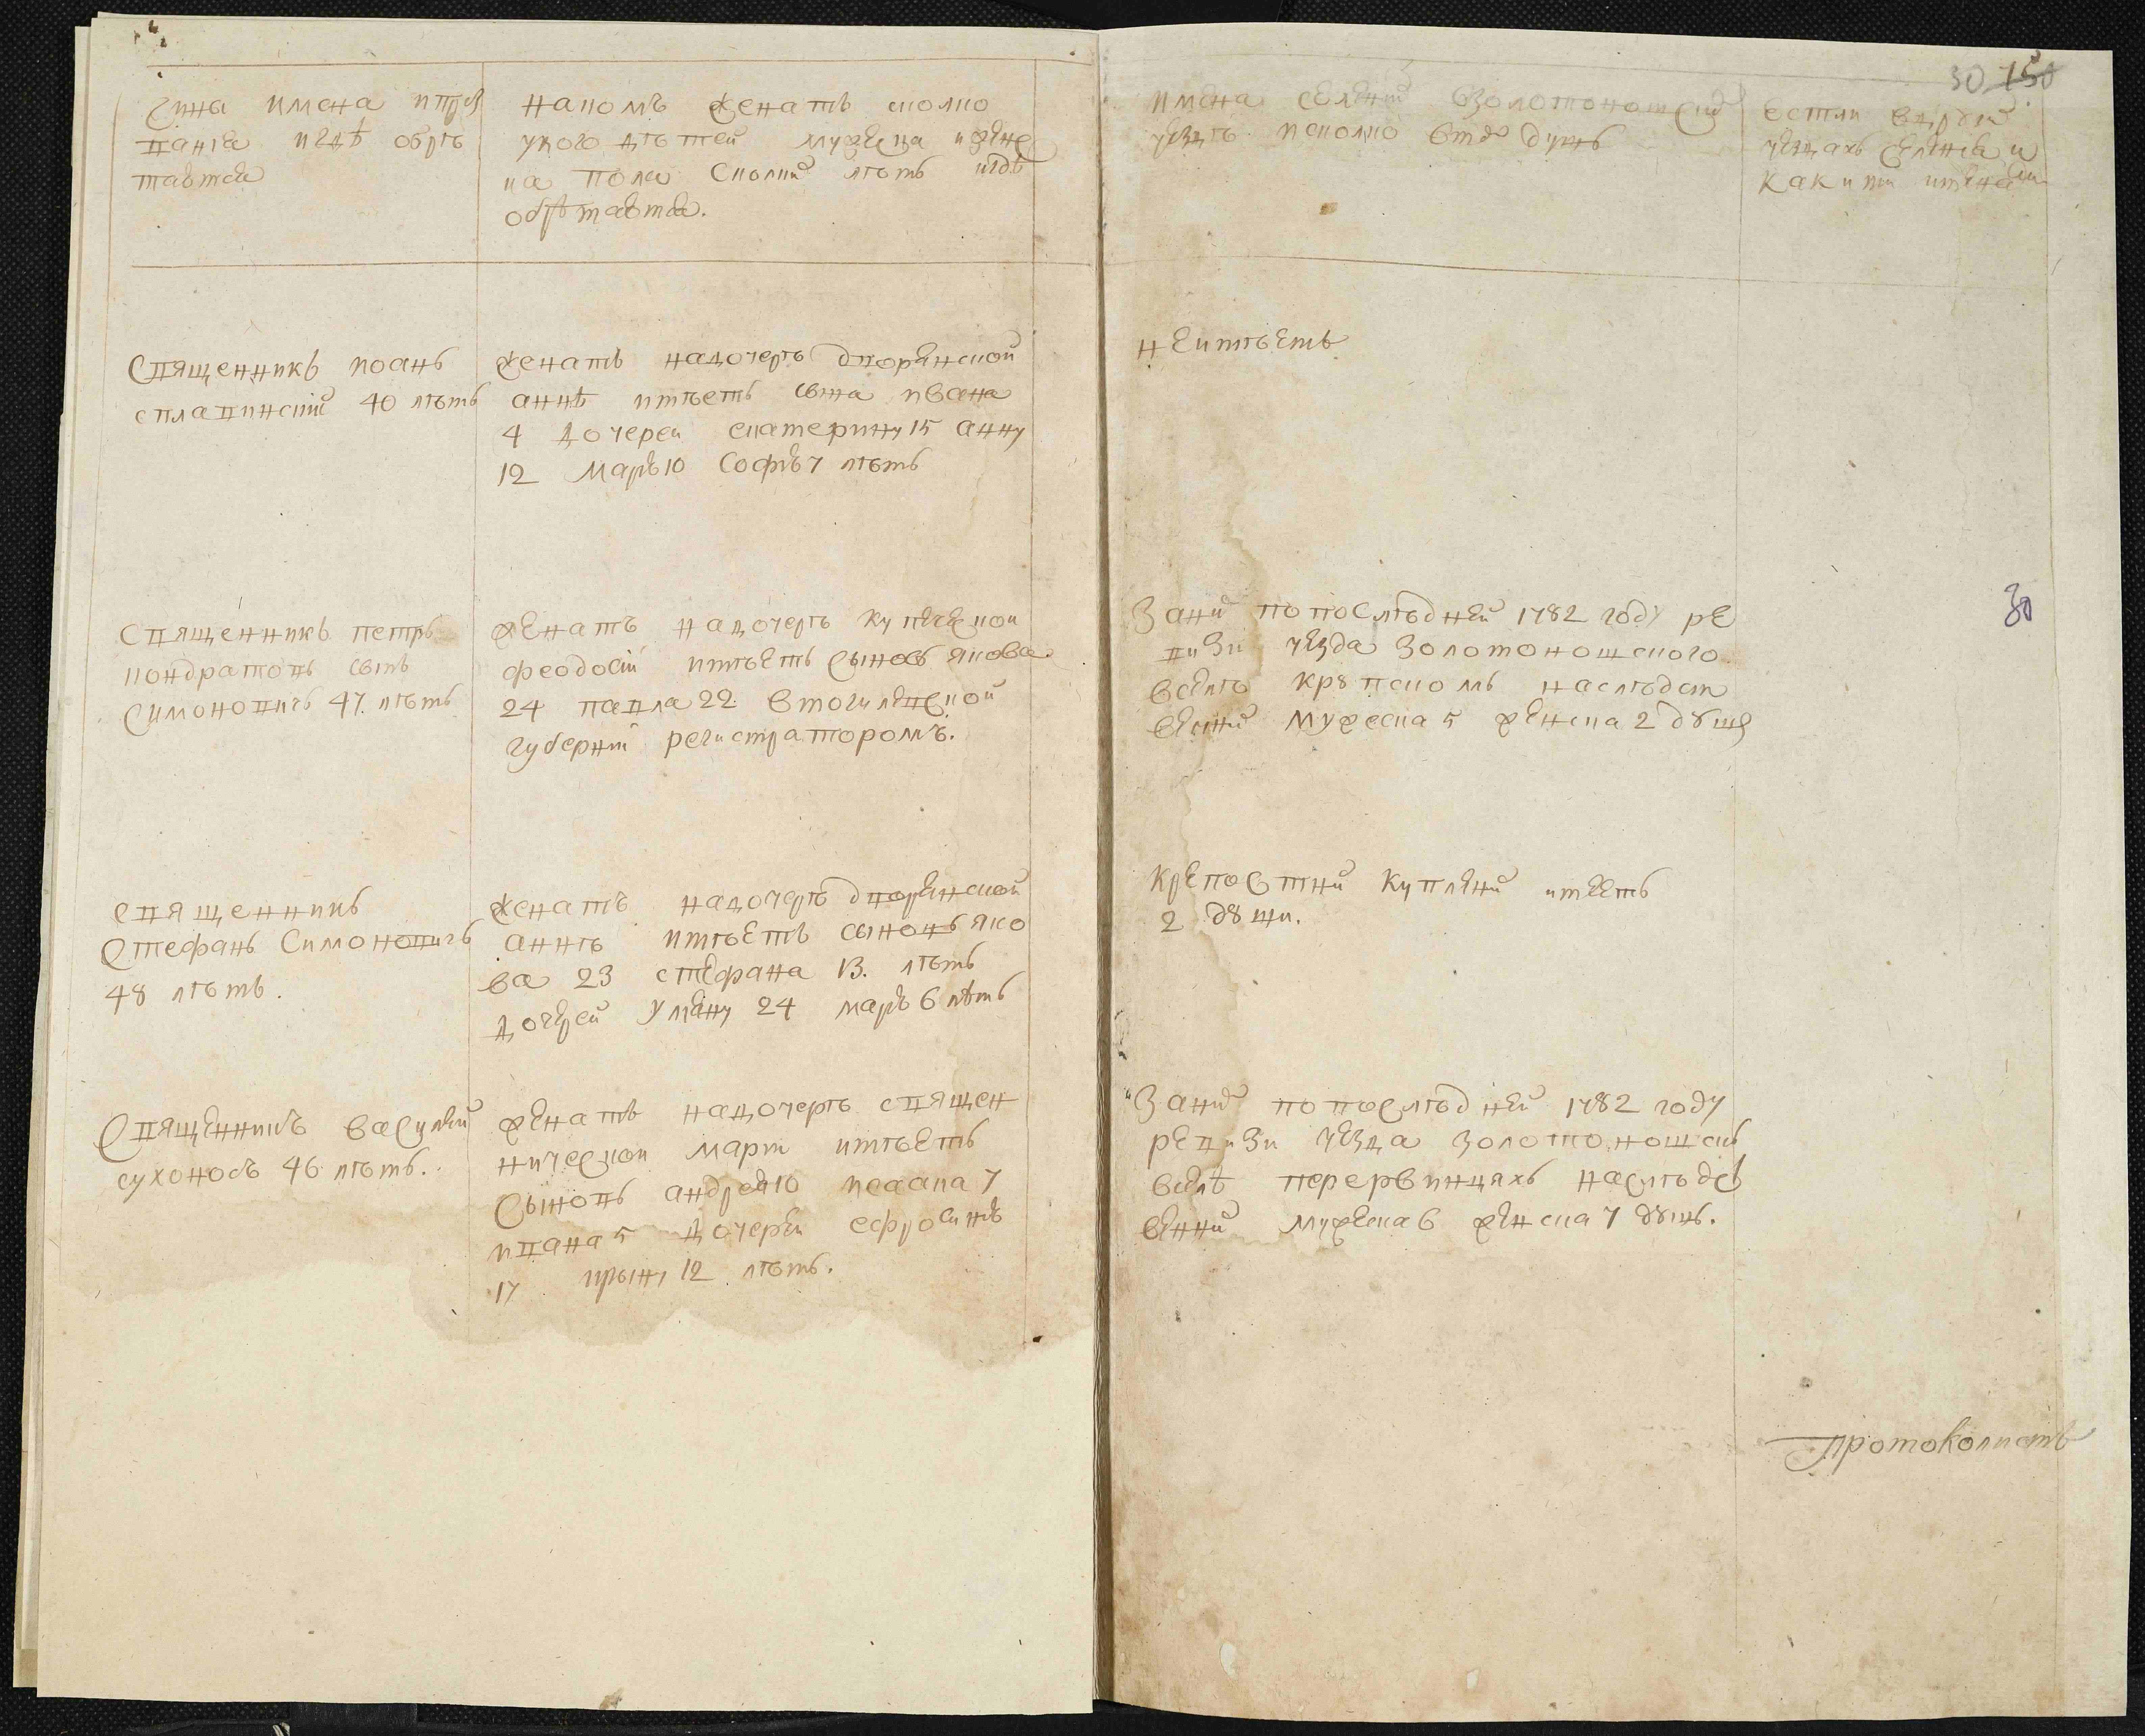 30 150
Чины имена ипроз
вания игдѣ обрѣ
таются
накомъ женатъ сколко
укого дѣтей мужеска ижене
ка пола Сколки лѣтъ игдѣ
обрѣтаются.
имена селений взолотоношском
уездѣ исколко втѣх душъ
естли вдругих
уездахъ селения и
какими имена
Священникъ иоанъ
сплавинский 40 лѣтъ
женатъ надочерѣ дворянской
аннѣ имѣетъ сына ивана
4 дочерей екатерину 15 анну
12 марию 10 Софию 7 лѣтъ
неимѣетъ
Священникъ петръ
кондратовъ сынъ
Симоновичъ 47 лѣтъ
женатъ надочерѣ купеческой
феодосии имѣетъ сыновъ якова
24 павла 22 вмогилевской
губернии регистраторомъ.
Заним попослѣдней 1782 году ре
визи уезда золотоношского
вселѣ крупскомъ наслѣдст
венних мужеска 5 женска 2 души
30
священникъ
Стефанъ Симоновичъ
48 лѣтъ.
женатъ надочерѣ дворянской
аннѣ имѣетъ сыновъ яко
ва 23 стефана 13. лѣтъ
дочерей Уляну 24 марию 6 лѣтъ
крепостних куплених имеетъ
2 души.
Священникъ василий
сухоносъ 46 лѣтъ.
женатъ надочерѣ священ
нической марии имѣетъ
Сыновъ андрея 10 исаака 7
ивана 5 дочерей ефросиню
17 ирыну 12 лѣтъ.
Заним попослѣдней 1782 году
ревизи уезда золотоношск
вселѣ первинцяхъ наслѣдс
венних мужеска 6 женска 7 душъ.
Протоколистъ